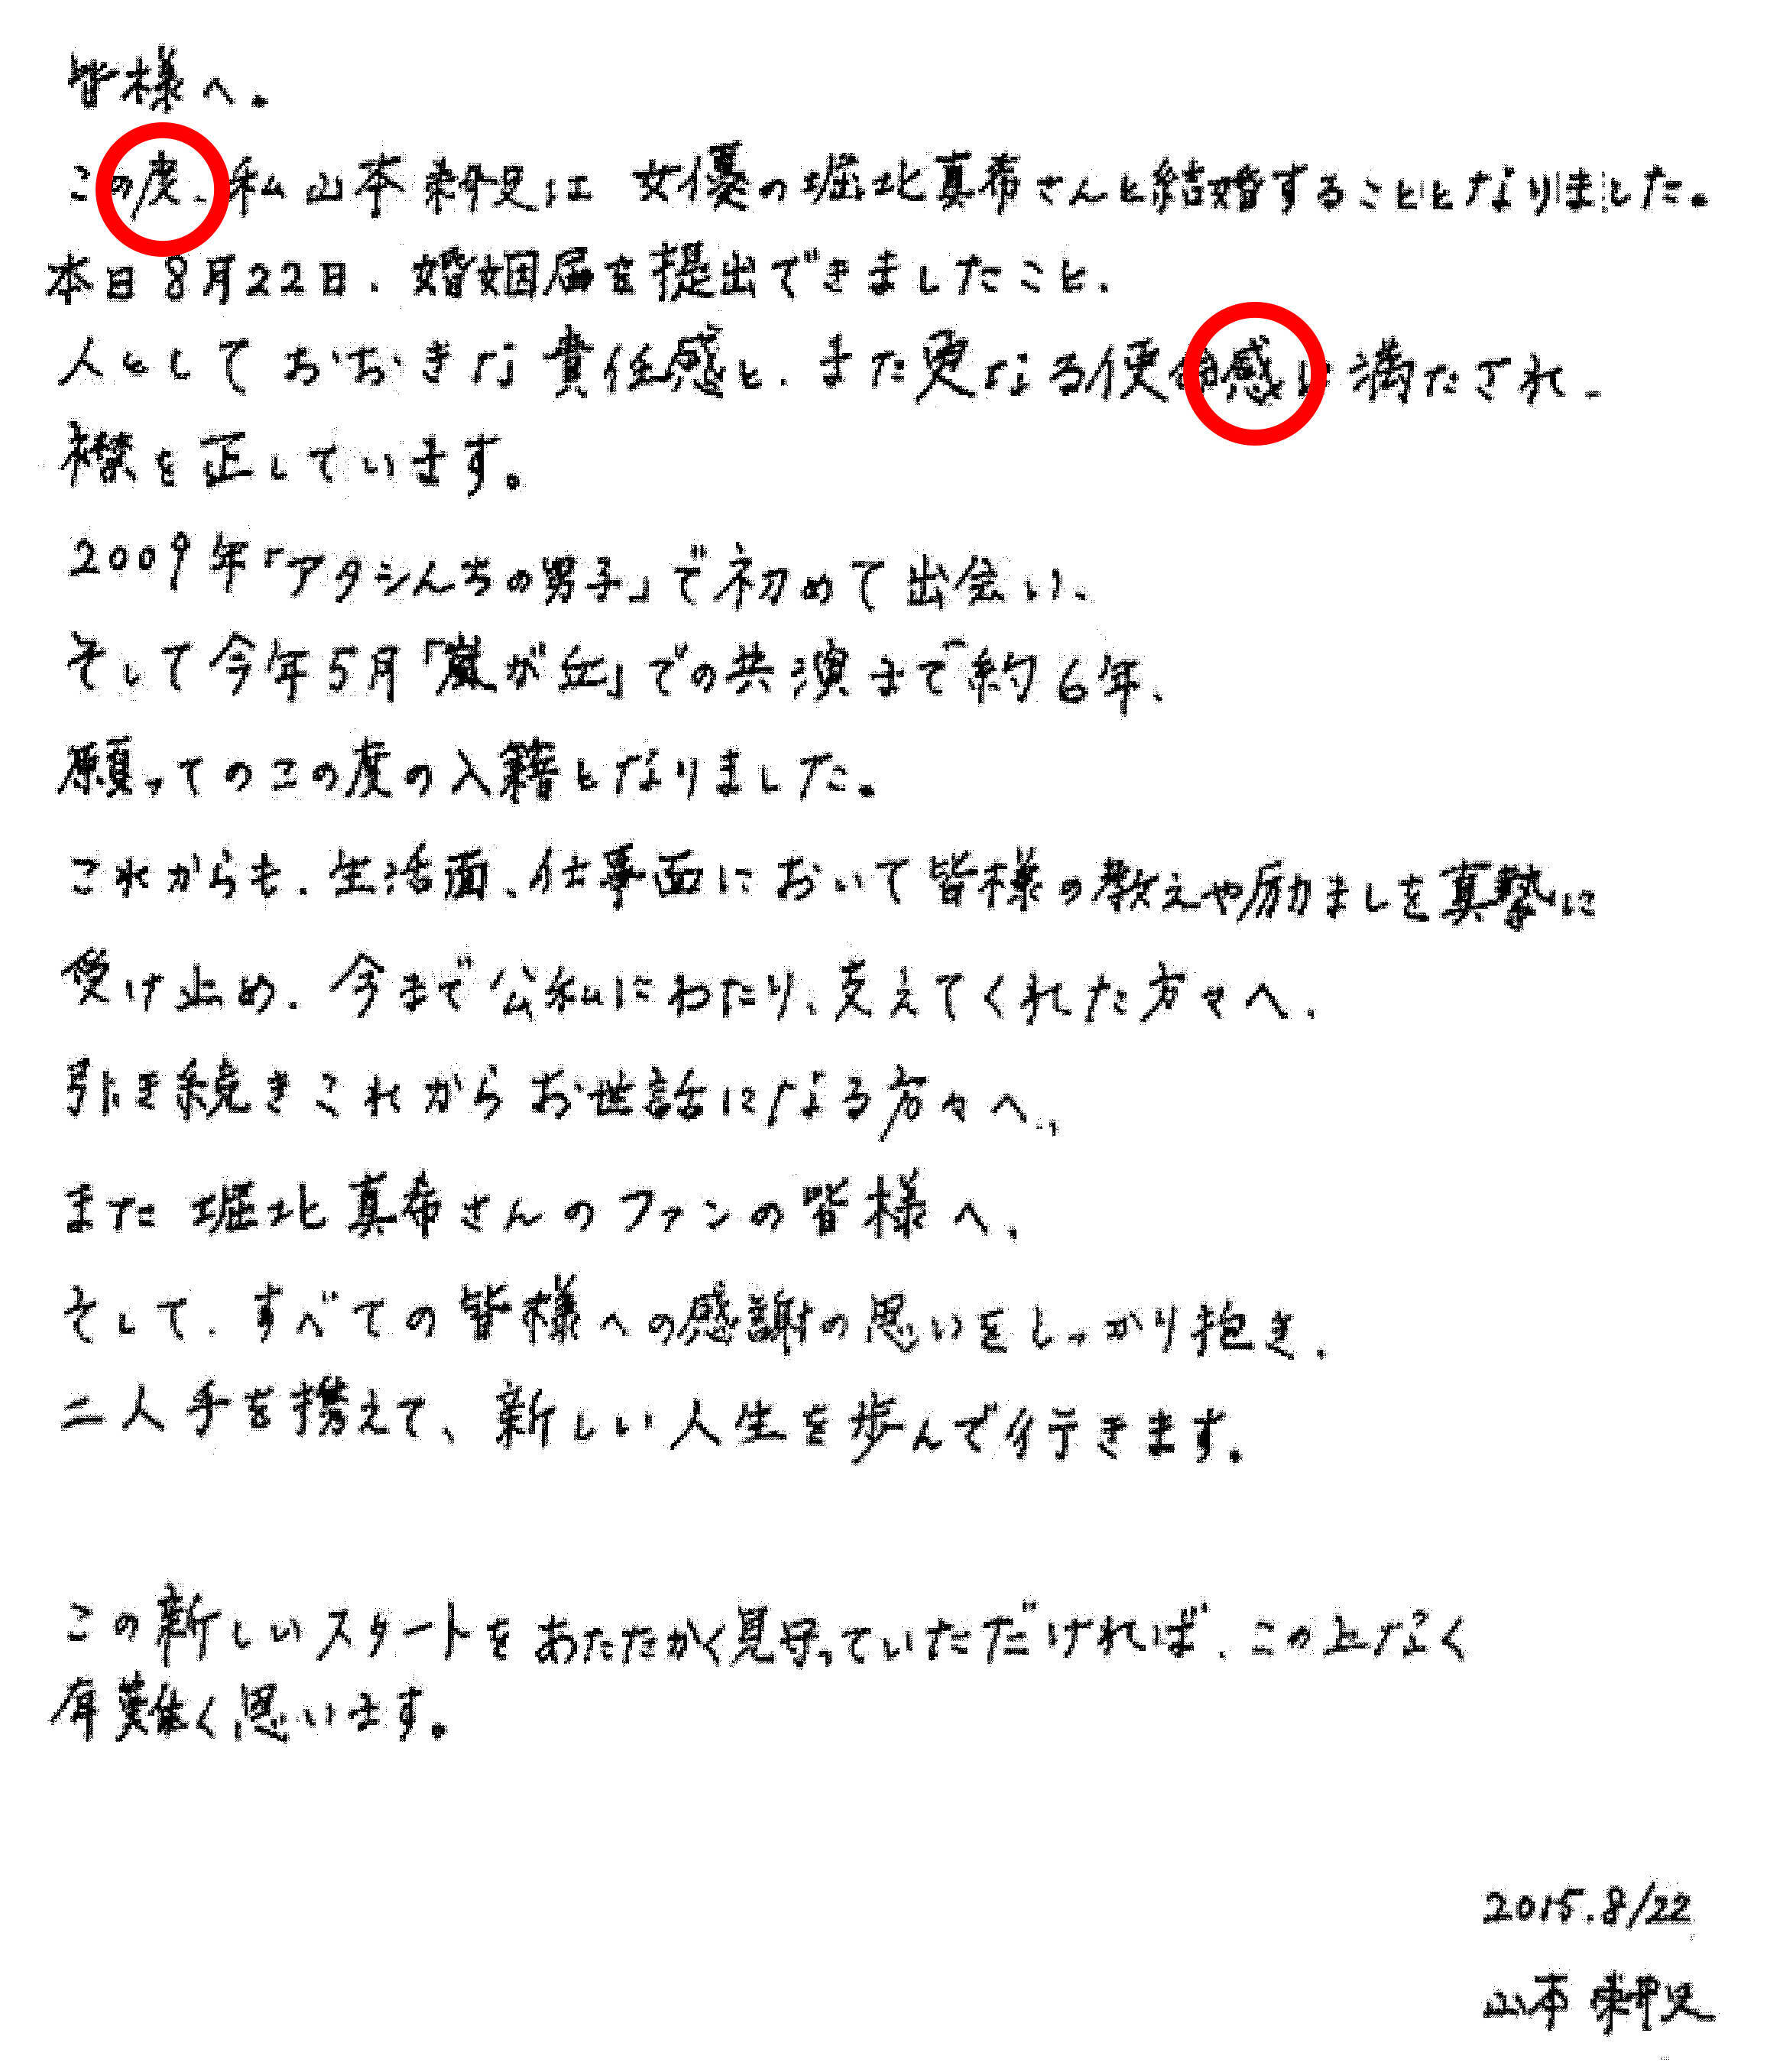 皆様へ。
この度、私山本耕史は 女優の堀北真希さんと結婚することとなりました。
本日8月22日、婚姻届を提出できましたこと、
人としておおきな責任感と、また更なる使命感に満たされ、
襟を正しています。
2009年「アタシんちの男子」で初めて出会い、
そして今年5月「嵐が丘」での共演まで約6年、
願ってのこの度の入籍となりました。
これからも、生活面、仕事面において皆様の教えや励ましを真摯に
受け止め、今まで公私にわたり、支えてくれた方々へ、
引き続きこれからお世話になる方々へ、
また 堀北真希さんのファンの皆様へ、
そして、すべての皆様への感謝の思いをしっかり抱き、
二人手を携えて、新しい人生を歩んで行きます。
この新しいスタートをあたたかく見守っていただければ、この上なく
有難く思います。
2015.8/22
山本耕史